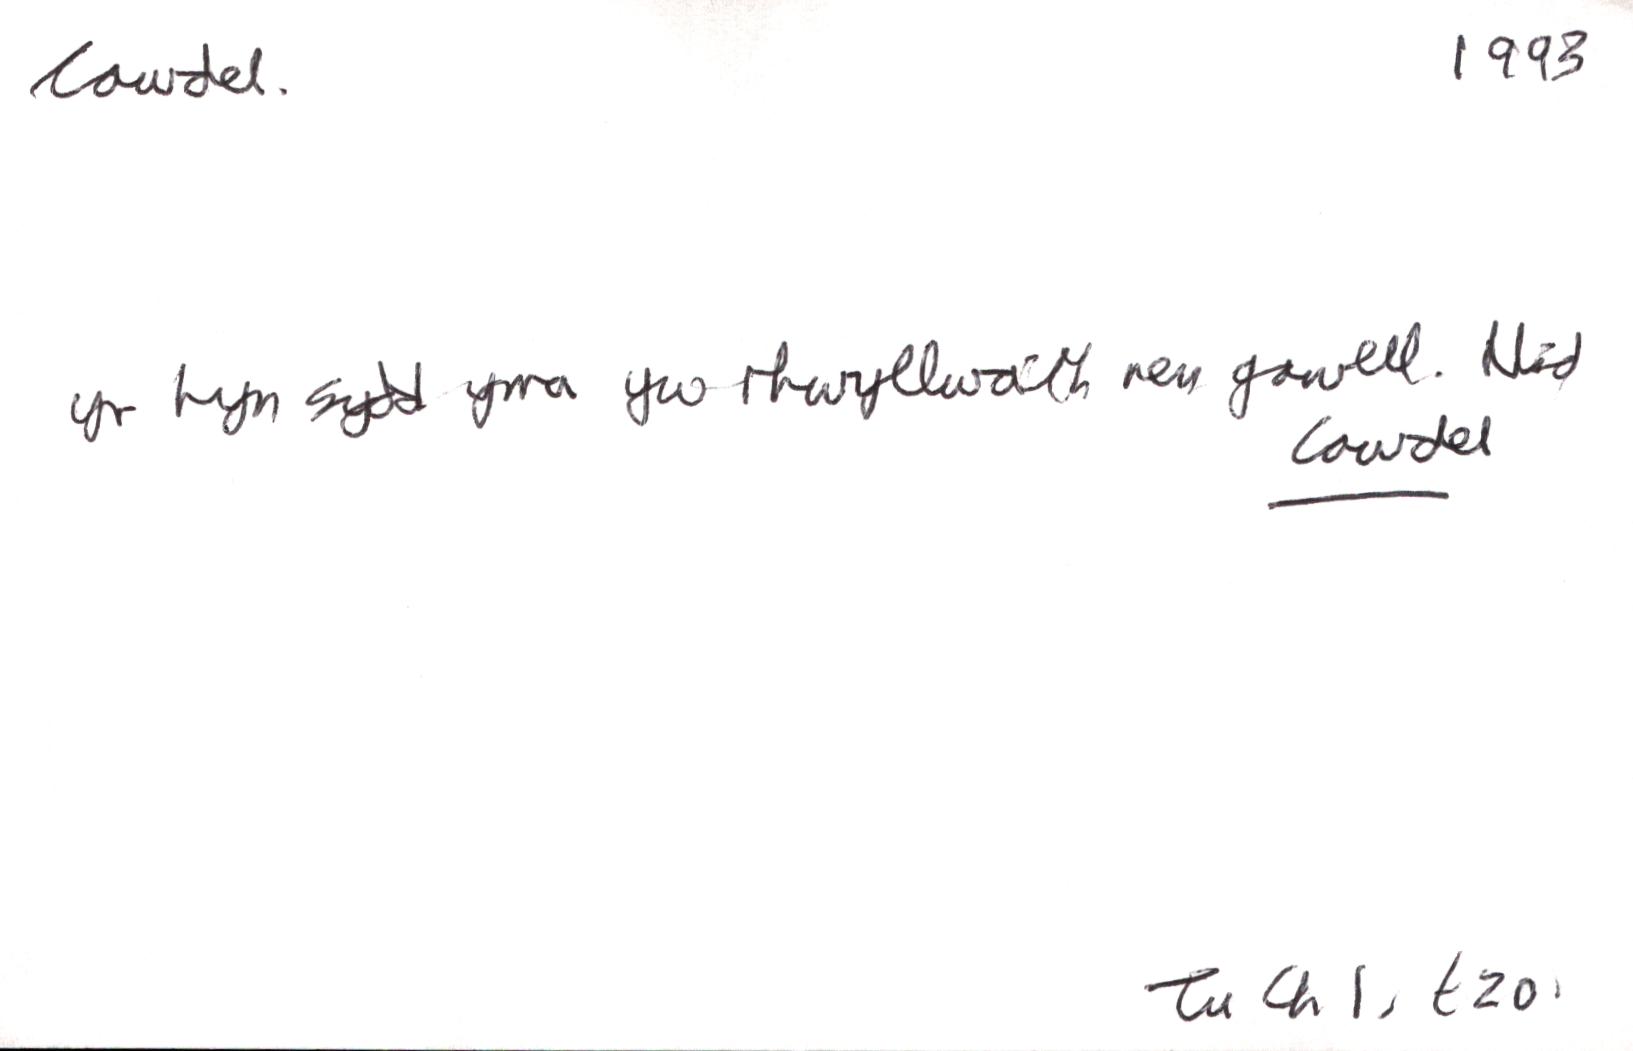 Cawdel. 1993
yr hyn sydd yma yw rhwyllwaith neu gawell. Nid
Cawdel
Tu Ch 1, t20.